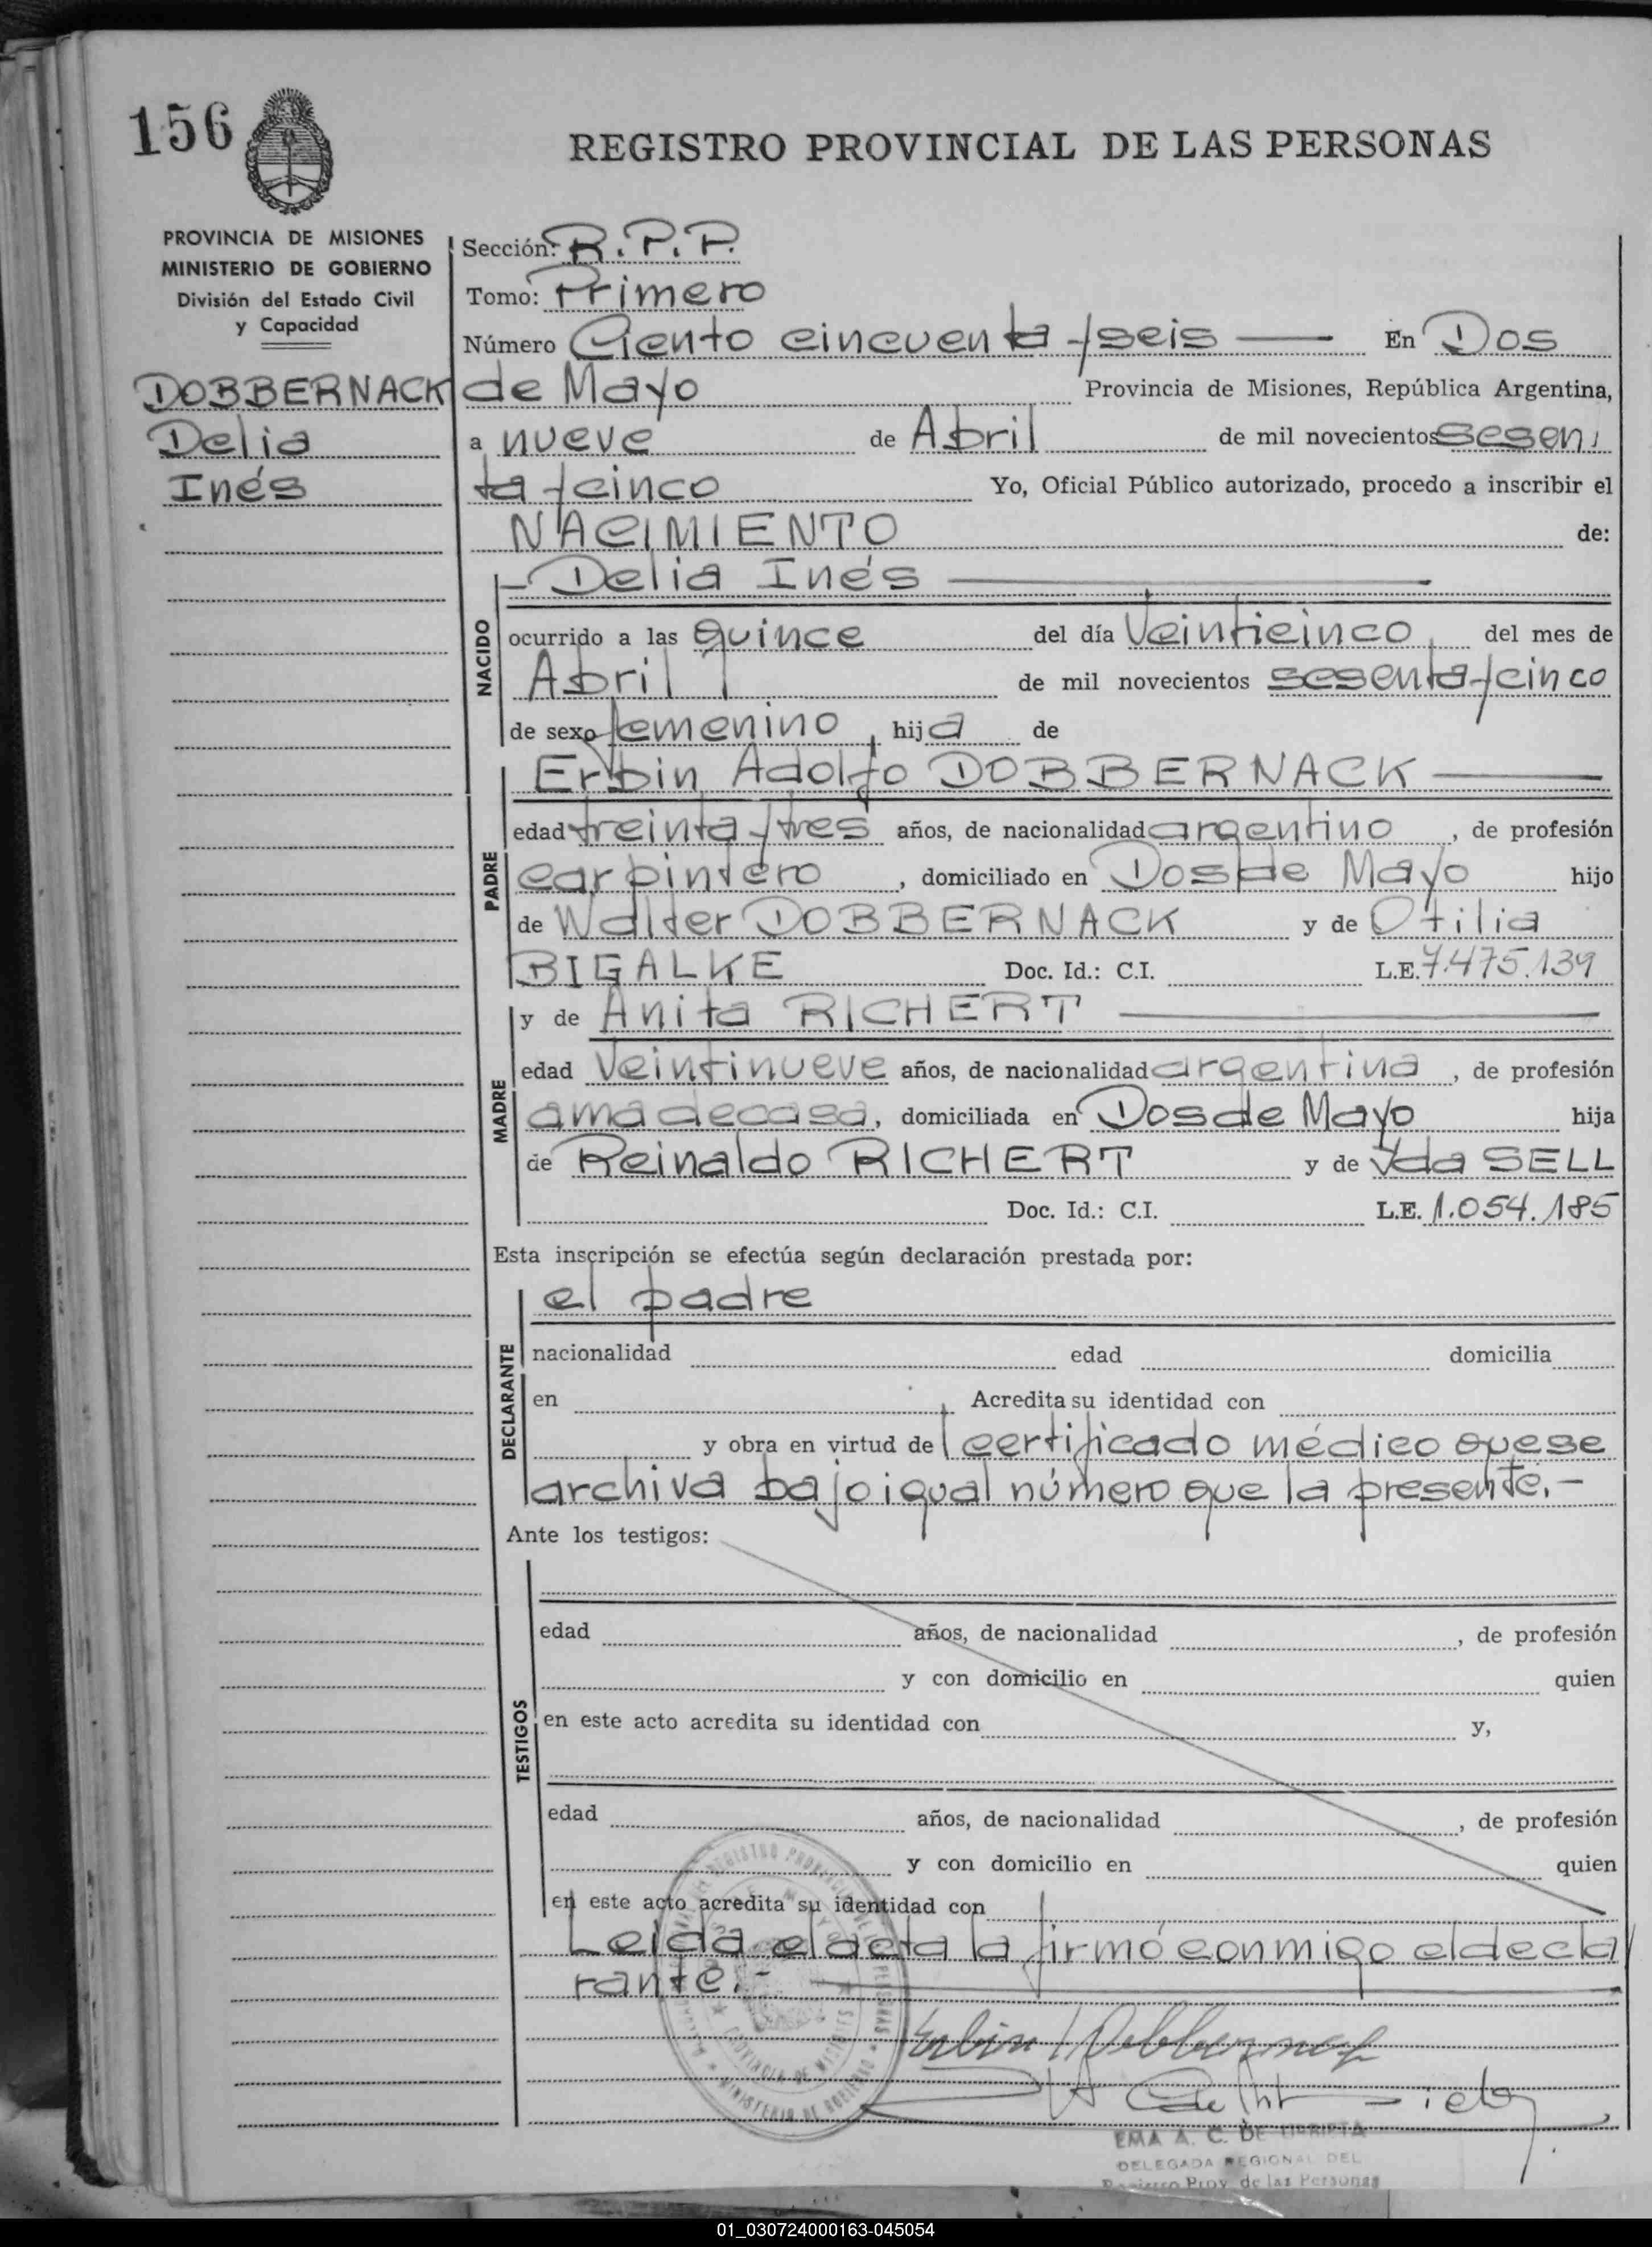 156
REGISTRO PROVINCIAL DE LAS PERSONAS
PROVINCIA DE MISIONES
MINISTERIO DE GOBIERNO
División del Estado Civil
y Capacidad
DOBBERNACK
Delia
Inés
Sección: R.P.P.
Tomo: Primero
Número Ciento cincuenta y seis — En Dos
de Mayo Provincia de Misiones, República Argentina,
a nueve de Abril de mil novecientos sesen
ta y cinco Yo, Oficial Público autorizado, procedo a inscribir el
NACIMIENTO de:
NACIDO
- Delia Inés —
ocurrido a las quince del día Veinticinco del mes de
Abril de mil novecientos sesenta y cinco
de sexo femenino, hija de
PADRE
Erbin Adolfo DOBBERNACK —
edad treinta y tres años, de nacionalidad argentino, de profesión
carpintero, domiciliado en Dos de Mayo hijo
de Walter DOBBERNACK y de Otilia
BIGALKE Doc. Id.: C.I. L.E. 7.475.139
MADRE
y de Anita RICHERT —
edad Veintinueve años, de nacionalidad argentina, de profesión
ama de casa, domiciliada en Dos de Mayo hija
de Reinaldo RICHERT y de Yda SELL
Doc. Id.: C.I. L.E. 1.054.185
Esta inscripción se efectúa según declaración prestada por:
DECLARANTE
el padre
nacionalidad edad domicilia
en Acredita su identidad con
y obra en virtud de certificado médico que se
archiva bajo igual número que la presente.-
Ante los testigos:
TESTIGOS
edad años, de nacionalidad , de profesión
y con domicilio en quien
en este acto acredita su identidad con y,
edad años, de nacionalidad , de profesión
y con domicilio en quien
en este acto acredita su identidad con
Leída el acta la firmó conmigo el decla
rante.-
PROVINCIA DE MISIONES
MINISTERIO DE GOBIERNO
Erbin Dobbernack
EMA A. C. DE URRIETA
DELEGADA REGIONAL DEL
Registro Prov. de las Personas
01_030724000163-045054